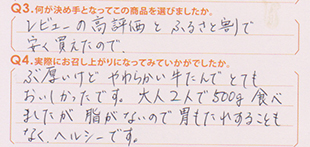 Q3.何が決め手となってこの商品を選びましたか。
レビューの高評価と ふるさと割で
安く買えたので.
Q4.実際にお召し上がりになってみていかがでしたか。
ぶ厚いけど やわらかい牛たんで とても
おいしかったです。大人2人で500g食べ
ましたが 脂がないので 胃もたれすることも
なく、ヘルシーです。